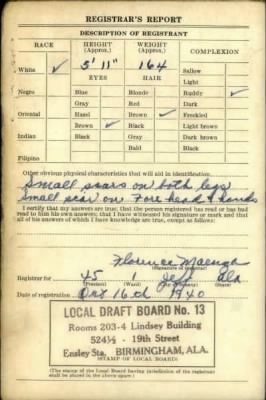 REGISTRAR'S REPORT
DESCRIPTION OF REGISTRANT
RACE HEIGHT (Approx.) WEIGHT (Approx.) COMPLEXION
White ✓ 5' 11" 164 Sallow
EYES HAIR Light
Negro Blue Blonde Ruddy ✓
Gray Red Dark
Oriental Hazel Brown ✓ Freckled
Brown ✓ Black Light brown
Indian Black Gray Dark brown
Bald Black
Filipino
Other obvious physical characteristics that will aid in identification
Small scars on both legs
Small scar on Fore head & hands
I certify that my answers are true; that the person registered has read or has had
read to him his own answers; that I have witnessed his signature or mark and that
all of his answers of which I have knowledge are true, except as follows:
Florence
(Signature of registrar)
Registrar for 45 1 Jeff Ala
(Precinct) (Ward) (State)
Date of registration Oct 16th 1940
LOCAL DRAFT BOARD No. 13
Rooms 203-4 Lindsey Building
524½ - 19th Street
Ensley Sta. BIRMINGHAM, ALA.
(STAMP OF LOCAL BOARD)
(The stamp of the Local Board having jurisdiction of the registrant
shall be placed in the above space.)